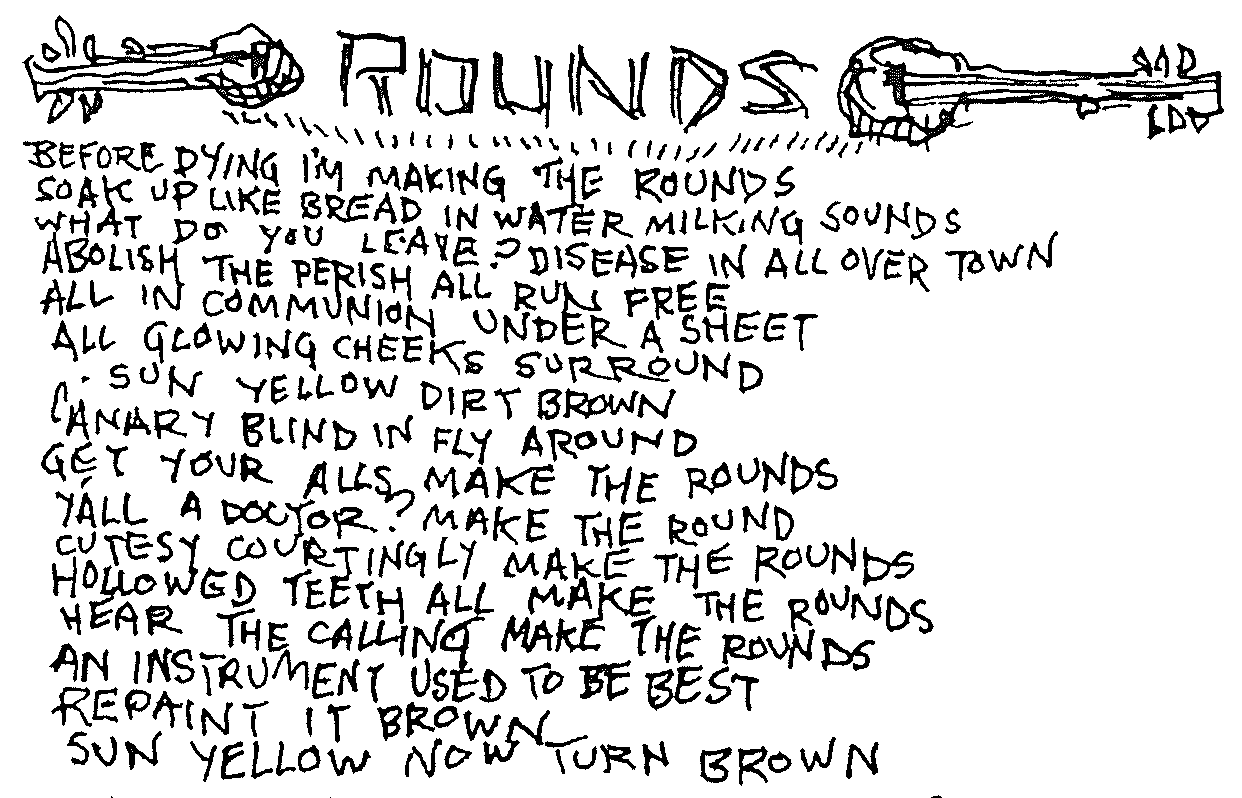 ROUNDS
BEFORE DYING I'M MAKING THE ROUNDS
SOAK UP LIKE BREAD IN WATER MILKING SOUNDS
WHAT DO YOU LEAVE? DISEASE IN ALL OVER TOWN
ABOLISH THE PERISH ALL RUN FREE
ALL IN COMMUNION UNDER A SHEET
ALL GLOWING CHEEKS SURROUND
SUN YELLOW DIRT BROWN
CANARY BLIND IN FLY AROUND
GET YOUR ALLS, MAKE THE ROUNDS
Y'ALL A DOCTOR? MAKE THE ROUND
CUTESY COURTINGLY MAKE THE ROUNDS
HOLLOWED TEETH ALL MAKE THE ROUNDS
HEAR THE CALLING MAKE THE ROUNDS
AN INSTRUMENT USED TO BE BEST
REPAINT IT BROWN
SUN YELLOW NOW TURN BROWN